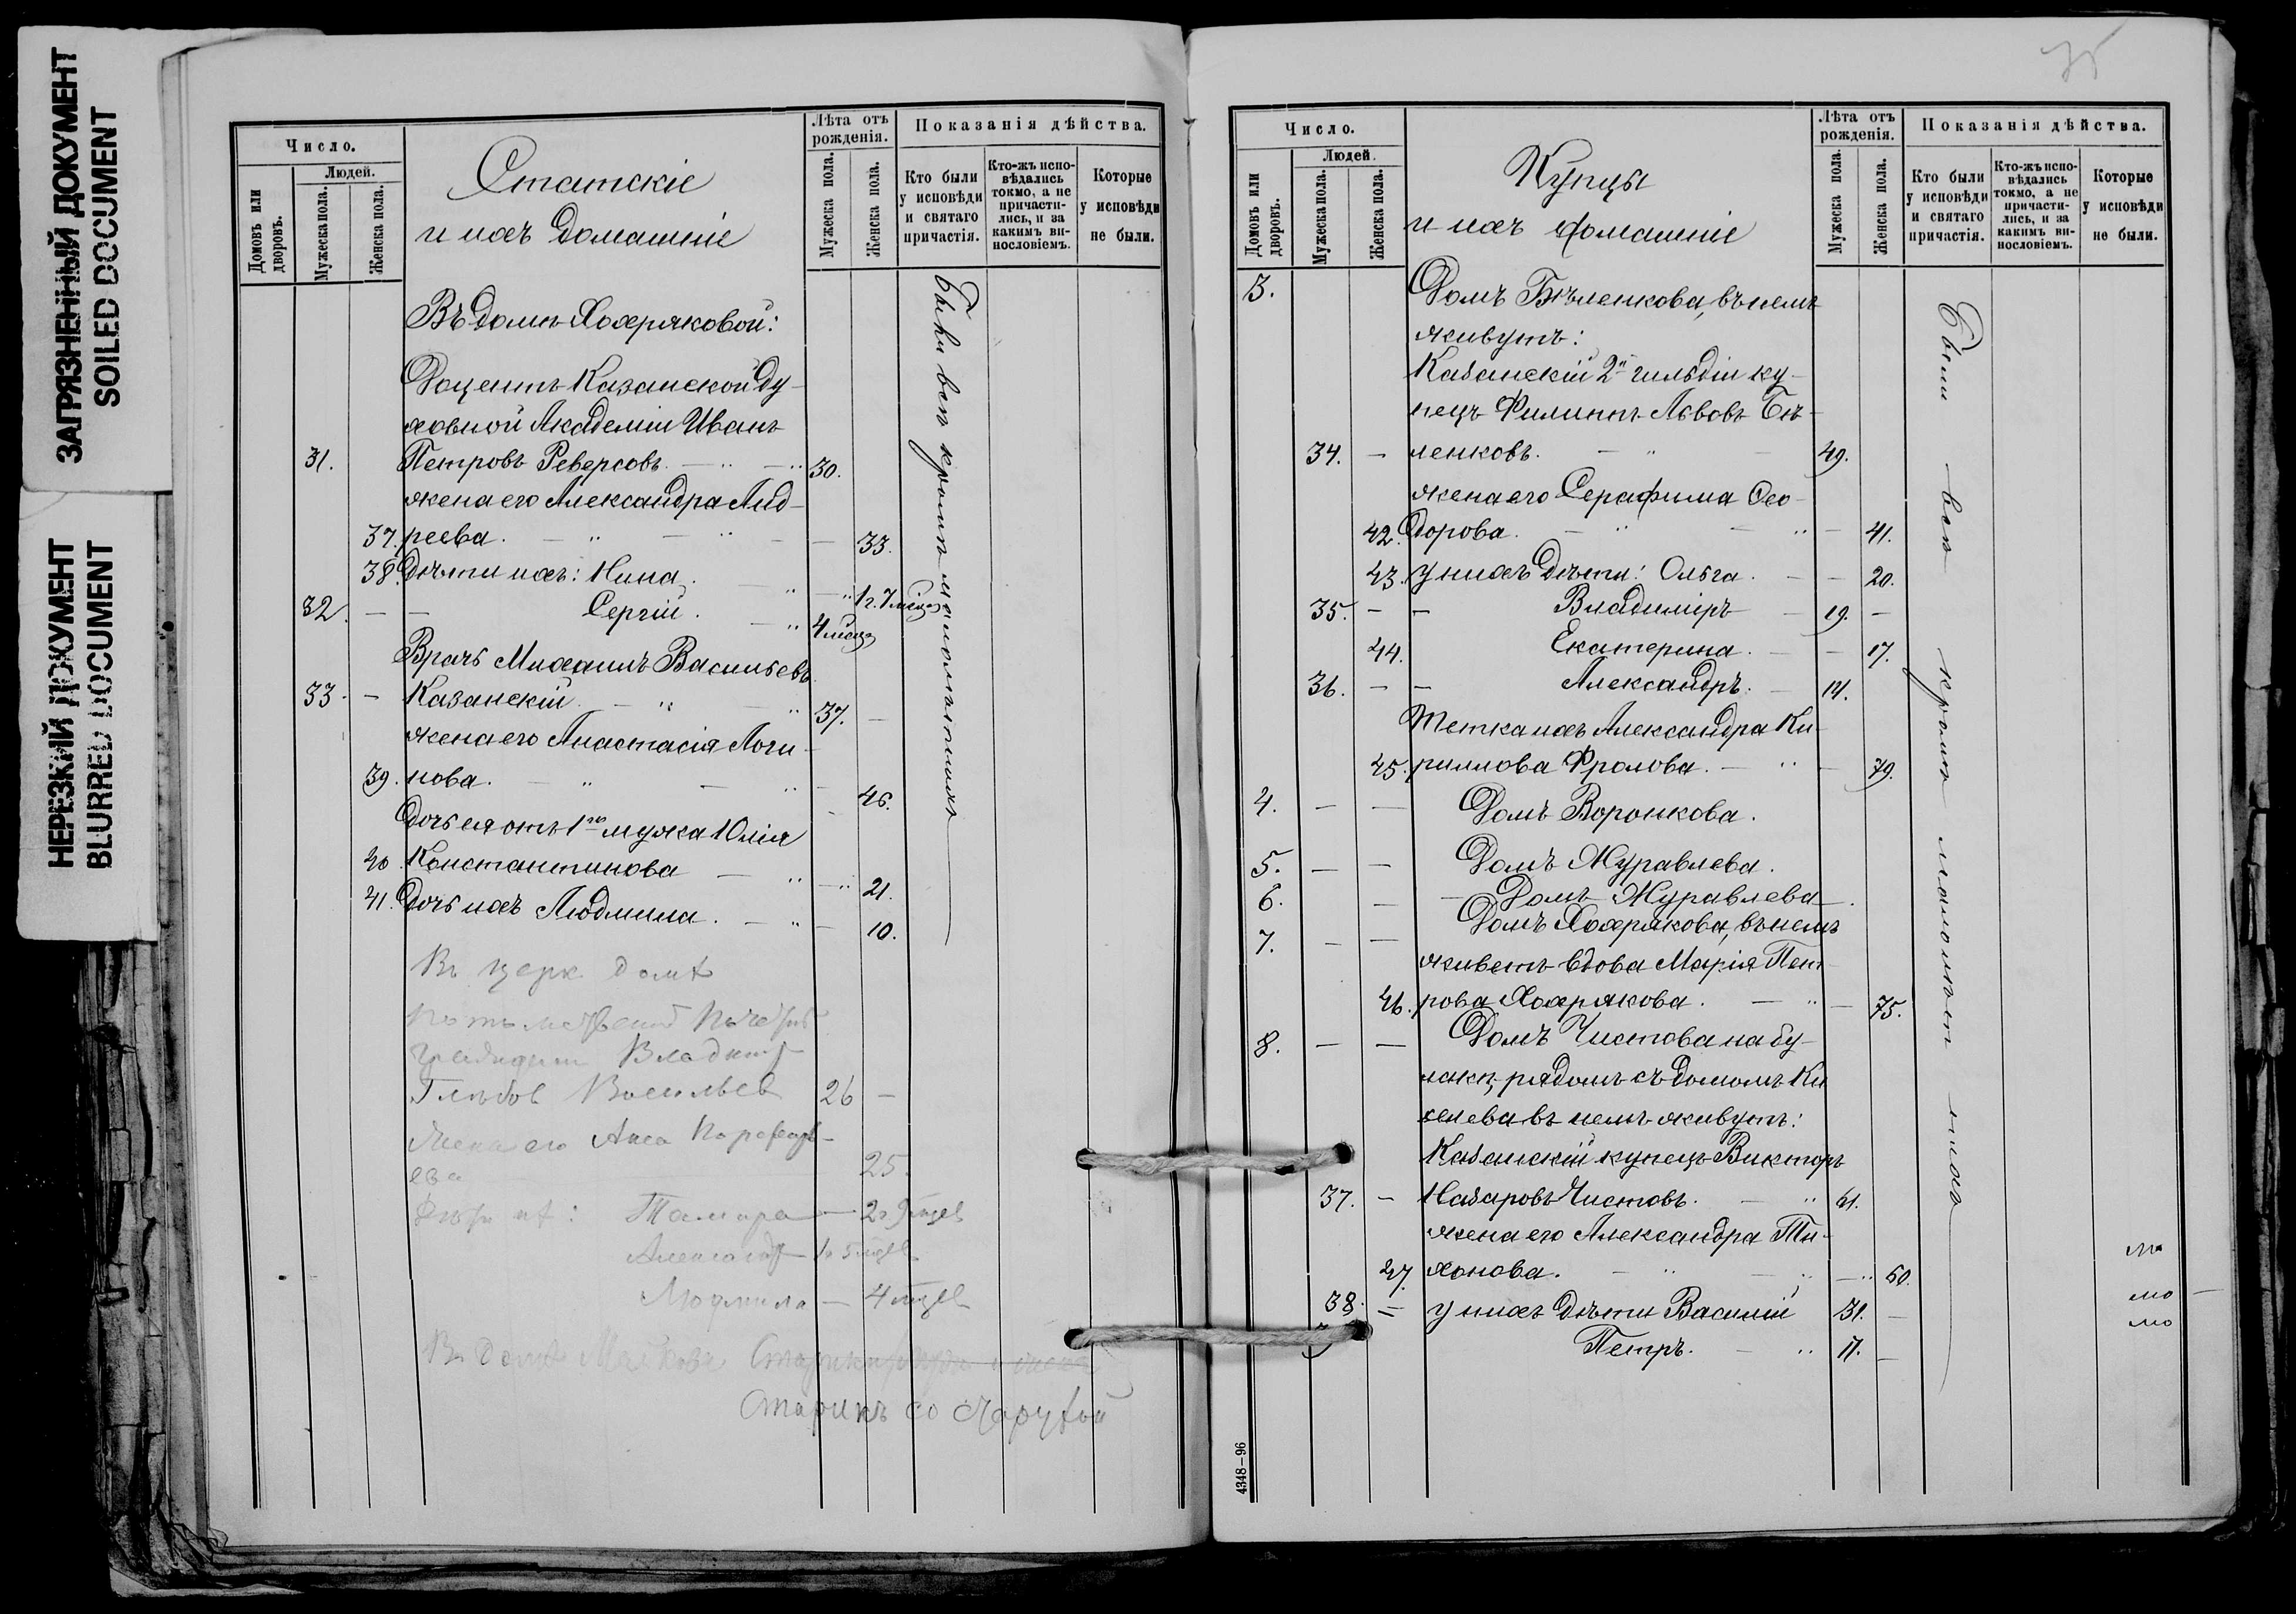 ЗАГРЯЗНЕННЫЙ ДОКУМЕНТ
SOILED DOCUMENT
НЕРЕЗКИЙ ДОКУМЕНТ
BLURRED DOCUMENT
Число.
Людей.
Домовъ или дворовъ.
Мужеска пола.
Женска пола.
Статскіе
и ихъ домашніе
Лѣта отъ рожденія.
Мужеска пола.
Женска пола.
Показанія дѣйства.
Кто были у исповѣди и святаго причастія.
Кто-жъ исповѣдались токмо, а не причастились, и за какимъ винословіемъ.
Которые у исповѣди не были.
Въ домѣ Хохряковой:
Доцентъ Казанской Ду-
ховной Академіи Иванъ
31. Петровъ Реверсовъ. — " — " 30.
жена его Александра Анд-
37. реева. — " — " — — 33.
38. дѣти ихъ: Нина. " — " 1 г. 7 мѣсяц
32. — — Сергій. — " 4 мѣсяц
Врачъ Михаилъ Васильевъ
33. — Казанскій. — " — " 37. —
жена его Анастасія Логи-
39. нова. — " — " — 46.
Дочь ея отъ 1го мужа Юлія
40 Константинова — " — " 21.
41. Дочь ихъ Людмила. — " — 10.
Были всѣ кромѣ малолѣтнихъ
Въ церк домѣ
Глѣбов Васильев 26 —
Жена его Анна
ева 25.
Дѣти их: Тамара — 2 г 9 мцев
Александр — 1 г 5 мцев
Людмила — 4 мцев
В домѣ
Старикъ со старухой
75
Число.
Людей.
Домовъ или дворовъ.
Мужеска пола.
Женска пола.
Купцы
и ихъ домашніе
Лѣта отъ рожденія.
Мужеска пола.
Женска пола.
Показанія дѣйства.
Кто были у исповѣди и святаго причастія.
Кто-жъ исповѣдались токмо, а не причастились, и за какимъ винословіемъ.
Которые у исповѣди не были.
3. Домъ Бѣленкова, въ немъ
живутъ:
Казанскій 2й гильдіи ку-
пецъ Филиппъ Львовъ Бѣ-
34. — ленковъ. — " — 49.
жена его Серафима Ѳео-
42. дорова. — " — " — 41.
43. у нихъ дѣти: Ольга. — — 20.
35. — — Владиміръ — 19. —
44. Екатерина. — — 17.
36. — — Александръ. — 14.
Тетка ихъ Александра Ки-
45. риллова Фролова. — " — 79.
4. — — Домъ Воронкова.
5. — — Домъ Журавлева.
6. — — Домъ Журавлева.
7. — — Домъ Хохрякова, въ немъ
живетъ вдова Марія Пет-
46. рова Хохрякова. — " — 75.
8. — — Домъ Чистова на бу-
лакѣ, рядомъ съ домомъ Ки
селева въ немъ живутъ:
Казанскій купецъ Викторъ
37. — Назаровъ Чистовъ. — " 61.
жена его Александра Ти-
47. хонова. — " — " — " 60.
38. — у нихъ дѣти Василій 31. —
Петръ. — " 17. —
Были всѣ кромѣ малолѣтнихъ
мо
мо —
мо
4348—96